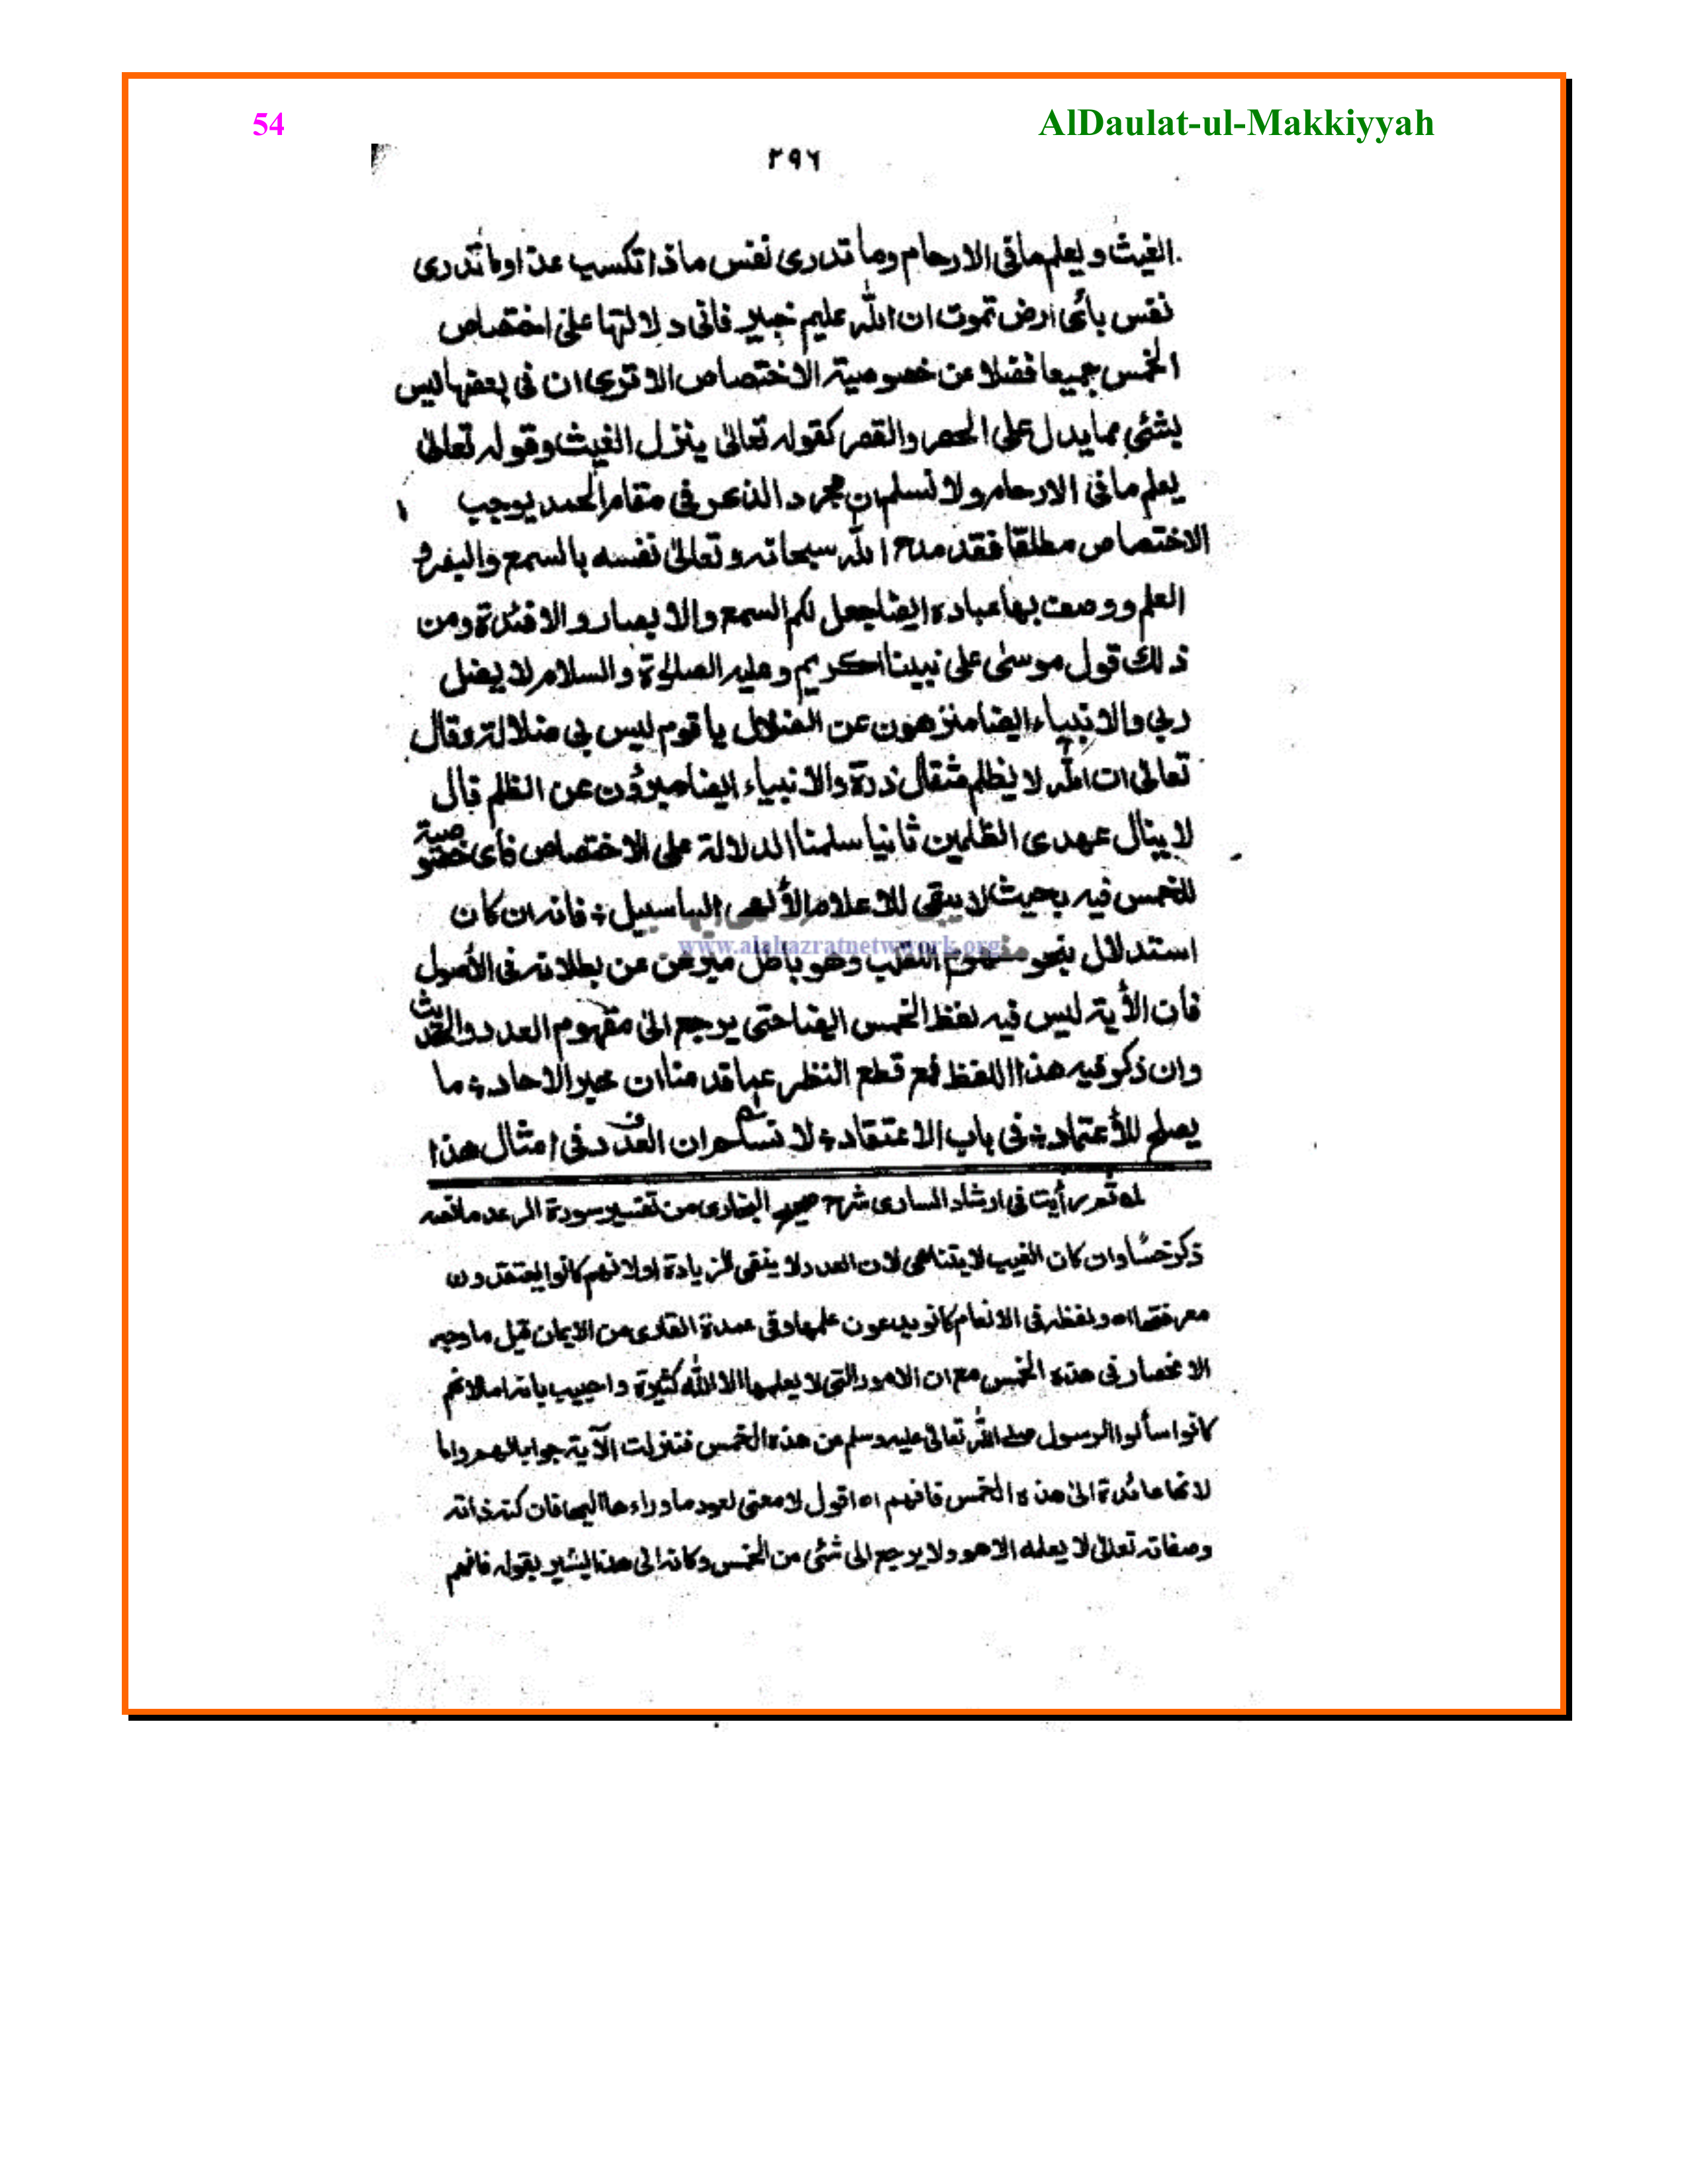 54
AlDaulat-ul-Makkiyyah
٢٩٦
الغيث و يعلم ما فى الارحام وما تدرى نفس ماذا تكسب غدا وما تدرى
نفس بأى ارض تموت ان اللّٰه عليم خبير فانى دلالتها على اختصاص
الخمس جميعا فضلا عن خصوصية الاختصاص الا ترى ان فى بعضها ليس
بشئ مما يدل على الحصر والقصر كقوله تعالىٰ ينزل الغيث وقوله تعالىٰ
يعلم ما فى الارحام ولا نسلم ان مجرد الذكر فى مقام الحمد يوجب
الاختصاص مطلقا فقد مدح اللّٰه سبحانه وتعالىٰ نفسه بالسمع والبصر و
العلم ووصف بها عباده ايضا جعل لكم السمع والابصار والافئدة ومن
ذلك قول موسىٰ على نبينا الكريم وعليه الصلاة والسلام لا يضل
ربى والانبياء ايضا منزهون عن الضلال يا قوم ليس بى ضلالة وقال
تعالىٰ ان اللّٰه لا يظلم مثقال ذرة والانبياء ايضا مبرؤن عن الظلم قال
لا ينال عهدى الظلمين ثانيا سلمنا الدلالة على الاختصاص فأى خصوصية
للخمس فيه بحيث لا يبقى للاعلام الألهى اليها سبيل ؛ فانه ان كان
www.alahazratnetwork.org
استدلال بنحو مفهوم اللقب وهو باطل مبرهن عن بطلانه فى الأصول
فان الأية ليس فيه لفظ الخمس ايضا حتى يرجع الىٰ مفهوم العدد والحديث
وان ذكر فيه هذا اللفظ فمع قطع النظر عما قدمنا ان خبر الاحاد ؛ ما
يصلح للأعتماد ؛ فى باب الاعتقاد ؛ لا نسلم ان العدد فى امثال هذا
له ثم رأيت فى ارشاد السارى شرح صحيح البخارى من تفسير سورة الرعد ما نصه
ذكر خمسا وان كان الغيب لا يتناهى لان العدد لا ينفى الزيادة اولانهم كانوا يعتقدون
معرفتها اه ولفظه فى الانعام كانوا يدعون علمها وفى عمدة القارى من الايمان قيل ما وجه
الانحصار فى هذه الخمس مع ان الامور التى لا يعلمها الا اللّٰه كثيرة واجيب بانه اما لانهم
كانوا سألوا الرسول صلى اللّٰه تعالىٰ عليه وسلم عن هذه الخمس فنزلت الآية جوابا لهم واما
لانها عائدة الىٰ هذه الخمس فافهم اه اقول لا معنى لعود ما وراءها اليها فان كنه ذاته
وصفاته تعالىٰ لا يعلمه الا هو ولا يرجع الى شئ من الخمس وكانه الى هذا يشير بقوله فافهم